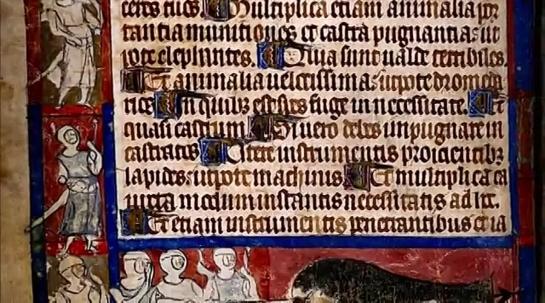 ceros tuos. Multiplica etiam animalia por
tantia munitiones et castra pugnantia: ut
pote elephantes. Quia sunt ualde terribiles
Et animalia uelocissima: utpote dromeda
rios. In quibꝫ fuge in necessitate. Et
quasi castrum. Si uero debes impugnare in
castratos. Utere instrumentis proicientibꝫ
lapides: utpote machinis. Et multiplica ea
iuxta modum instantis necessitatis ad
Et etiam instrumentis penetrantibus et ia